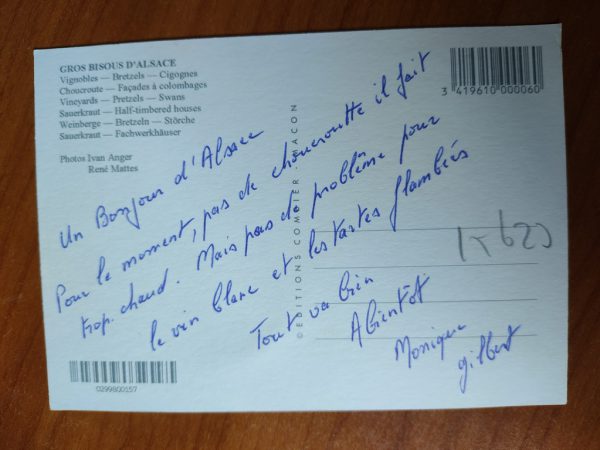 GROS BISOUS D'ALSACE
Vignobles — Bretzels — Cigognes
Choucroute — Façades à colombages
Vineyards — Pretzels — Swans
Sauerkraut — Half-timbered houses
Weinberge — Bretzeln — Störche
Sauerkraut — Fachwerkhäuser
Photos Ivan Anger
René Mattes
3 419610 000060
© EDITIONS COMBIER MACON
Un Bonjour d'Alsace
Pour le moment, pas de choucroutte il fait
trop chaud. Mais pas de problème pour
le vin blanc et les tartes flambées
Tout va bien
Abientôt
Monique
gilbert
0299800157